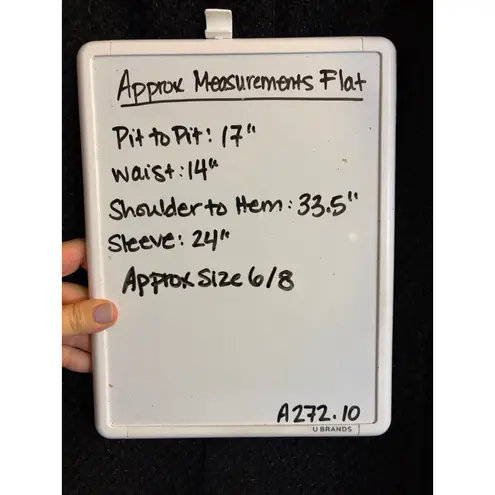 Approx Measurements Flat
Pit to Pit: 17"
Waist: 14"
Shoulder to Hem: 33.5"
Sleeve: 24"
Approx Size 6/8
A272.10
U BRANDS